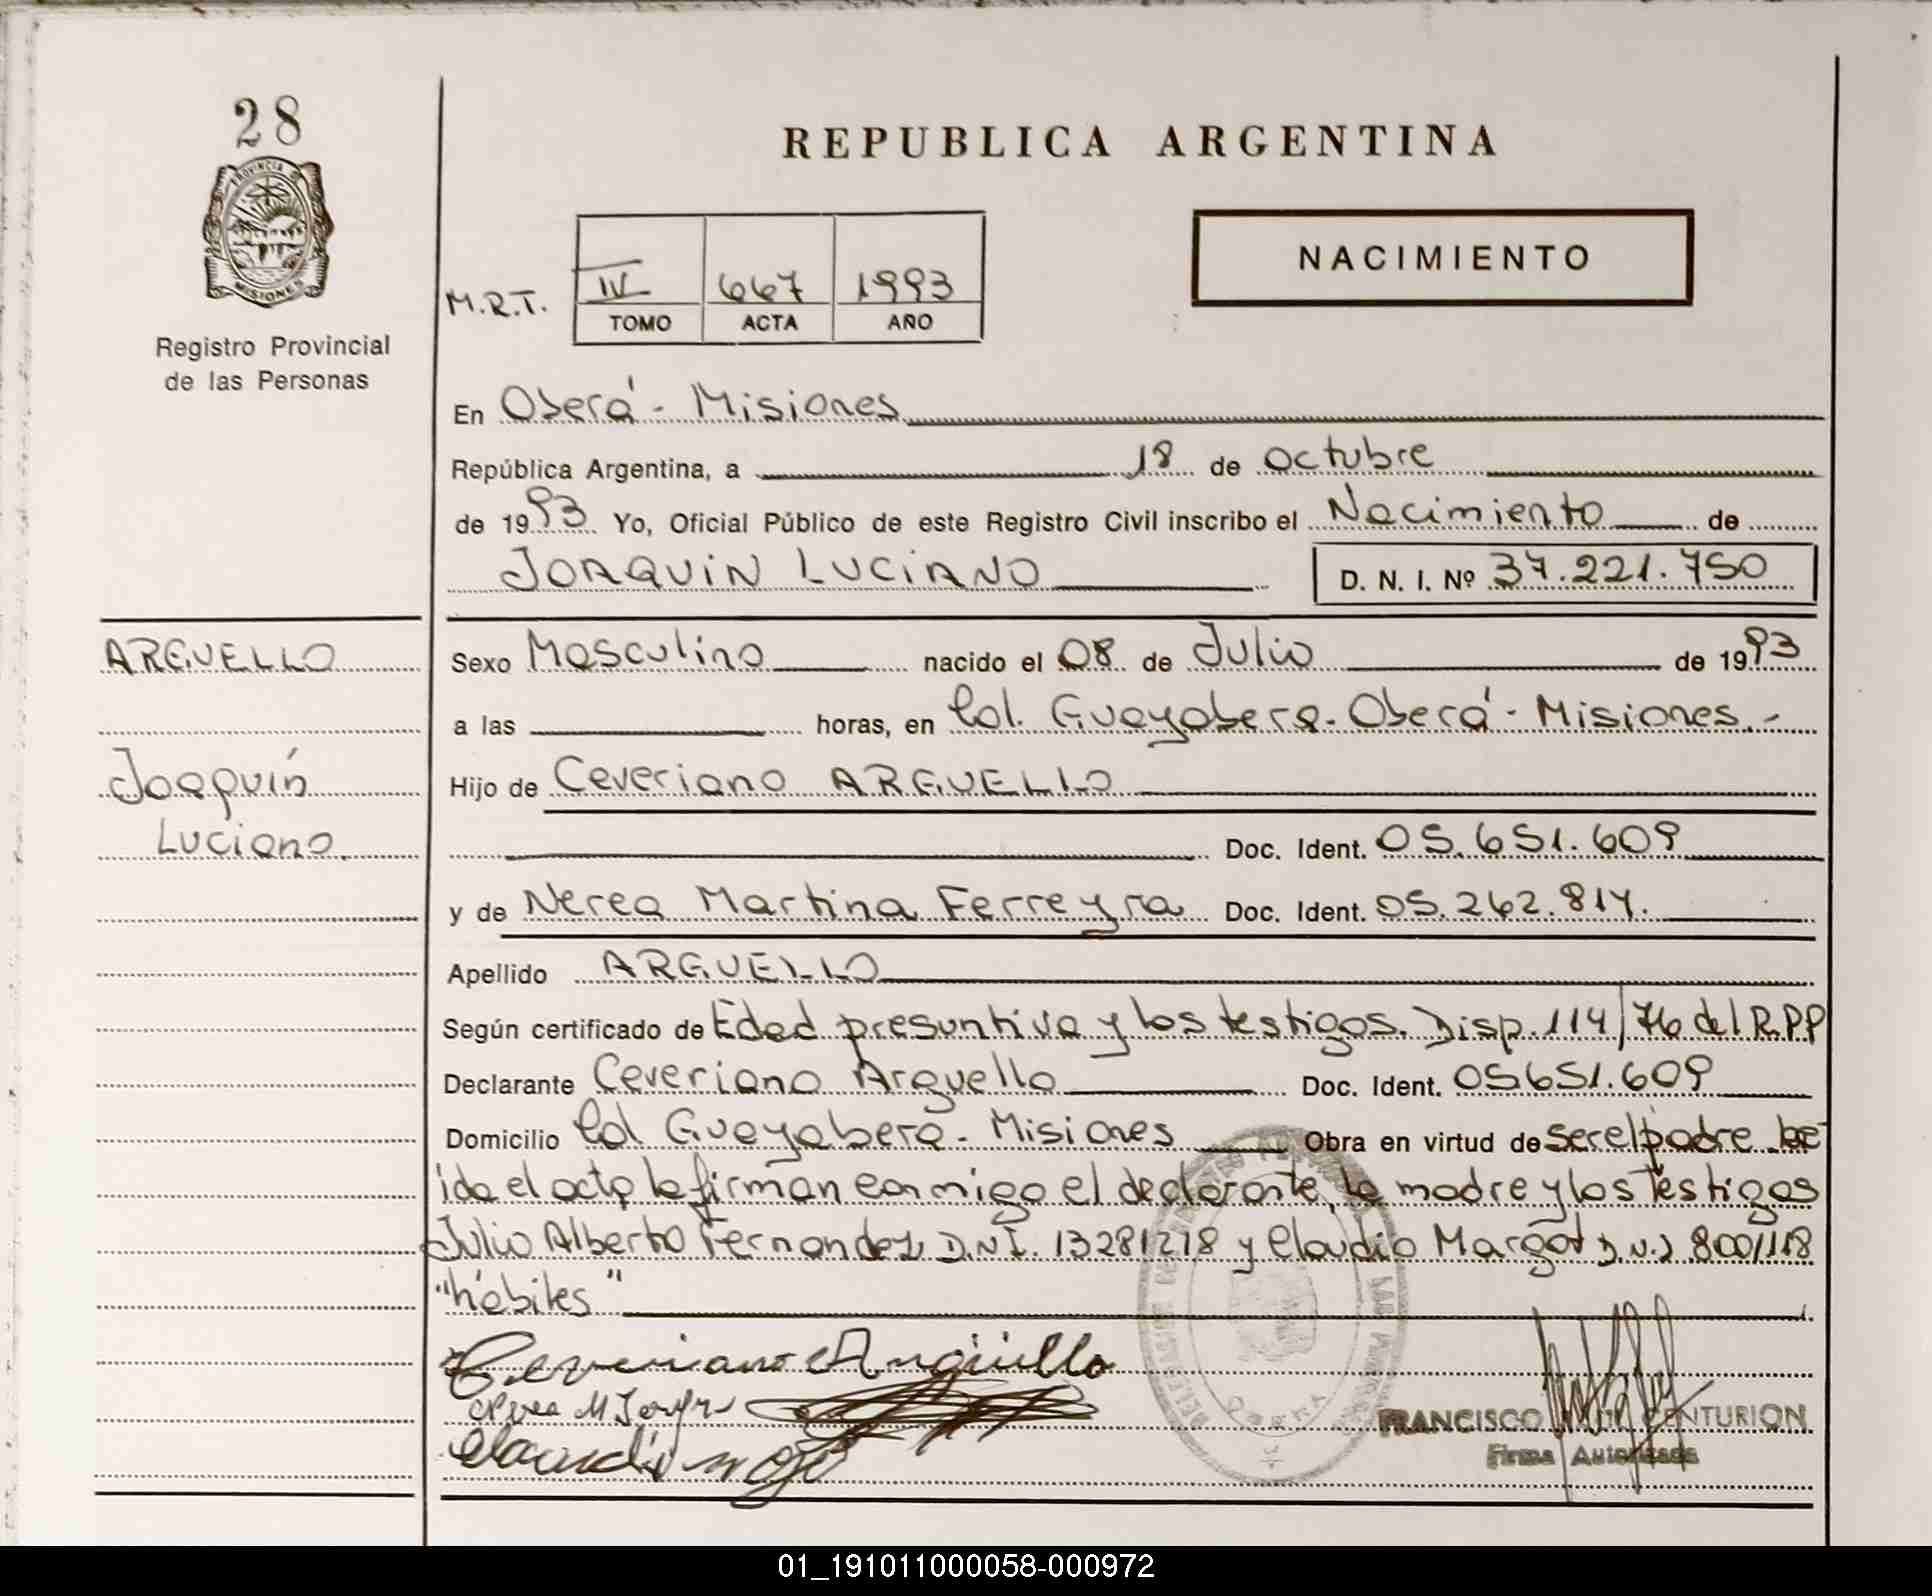 28
PROVINCIA DE
MISIONES
Registro Provincial
de las Personas
REPUBLICA ARGENTINA
NACIMIENTO
M.R.T.
IV 667 1993
TOMO ACTA AÑO
En Oberá - Misiones
República Argentina, a 18 de octubre
de 1993 Yo, Oficial Público de este Registro Civil inscribo el Nacimiento de
JOAQUIN LUCIANO D. N. I. Nº 37.221.750
ARGUELLO
Joaquín
Luciano.
Sexo Masculino nacido el 08 de Julio de 1993
a las horas, en Col. Guayabera - Oberá - Misiones.-
Hijo de Ceveriano ARGUELLO
Doc. Ident. 05.651.609
y de Nerea Martina Ferreyra Doc. Ident. 05.262.814.
Apellido ARGUELLO
Según certificado de Edad presuntiva y los testigos. Disp. 114/76 del R.P.P
Declarante Ceveriano Arguello Doc. Ident. 05651.609
Domicilio Col Guayabera - Misiones Obra en virtud de ser el padre Le
ida el acta la firman conmigo el declarante, la madre y los Testigos
Julio Alberto Fernandez D.N.I. 13281278 y Claudio Margot D.N.I. 8001118
"hábiles"
Ceveriano Argüello
FRANCISCO CENTURION
Firma Autorizada
OBERA
01_191011000058-000972